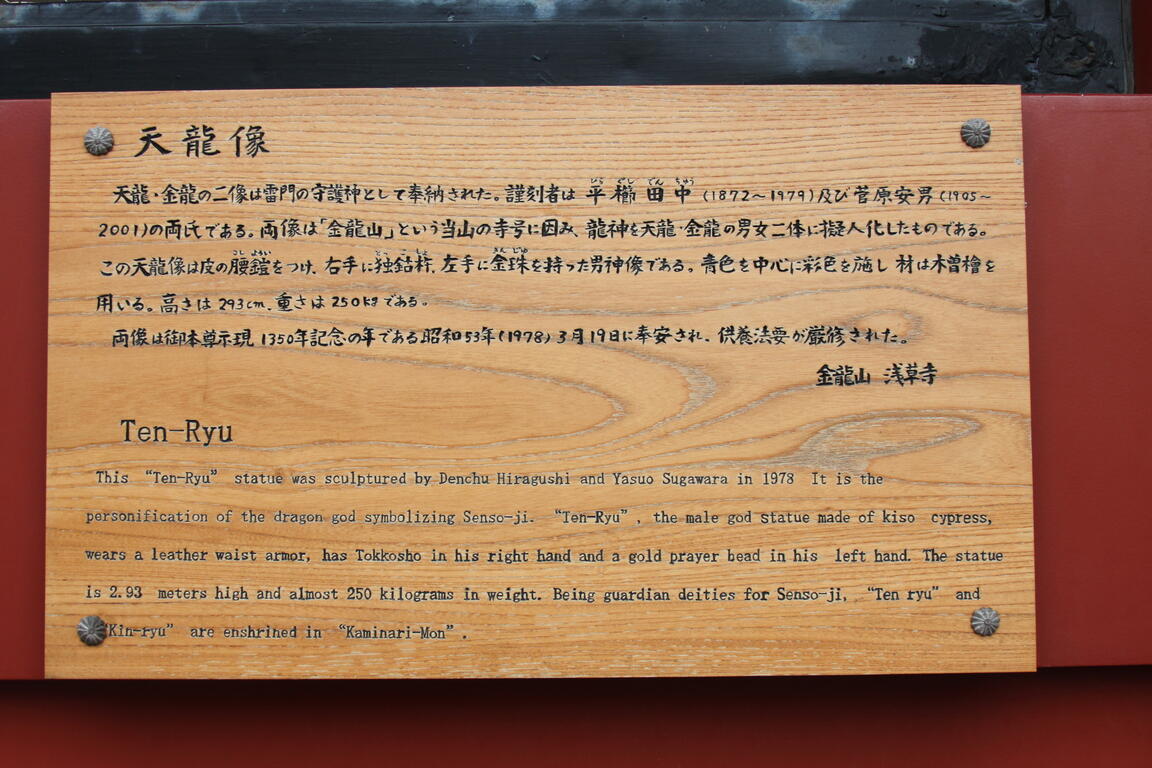 天龍像
天龍・金龍の二像は雷門の守護神として奉納された。謹刻者は 平櫛田中 (1872～1979)及び菅原安男(1905～
2001)の両氏である。両像は「金龍山」という当山の寺号に因み、龍神を天龍・金龍の男女二体に擬人化したものである。
この天龍像は皮の腰鎧をつけ、右手に独鈷杵、左手に金珠を持った男神像である。青色を中心に彩色を施し 材は木曽檜を
用いる。高さは 293cm、重さは 250kgである。
両像は御本尊示現 1350年記念の年である昭和53年(1978) 3月19日に奉安され、供養法要が厳修された。
金龍山 浅草寺
Ten-Ryu
This “Ten-Ryu” statue was sculptured by Denchu Hiragushi and Yasuo Sugawara in 1978 It is the
personification of the dragon god symbolizing Senso-ji. “Ten-Ryu”, the male god statue made of kiso cypress,
wears a leather waist armor, has Tokkosho in his right hand and a gold prayer bead in his left hand. The statue
is 2.93 meters high and almost 250 kilograms in weight. Being guardian deities for Senso-ji, “Ten ryu” and
“Kin-ryu” are enshrined in “Kaminari-Mon”.